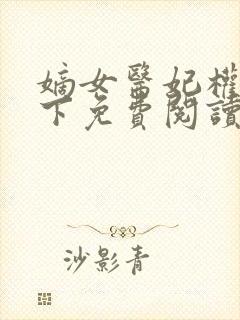 嫡女醫妃權
下免費閱讀
沙影青